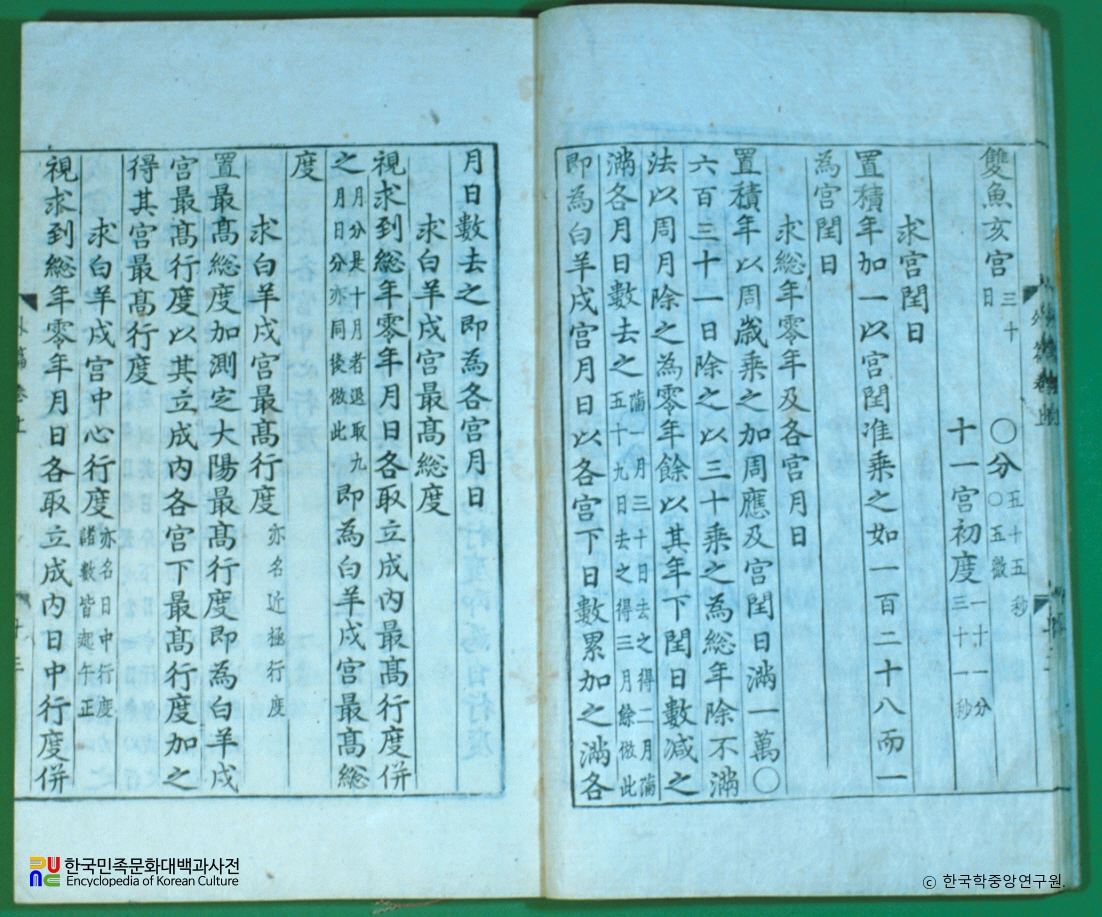 雙魚亥宮三十日
〇分五十五秒〇五微
十一宮初度三十一分一十一秒
求宮閏日
置積年加一以宮閏准乘之如一百二十八而一
為宮閏日
求緫年零年及各宮月日
置積年以周歲乘之加周應及宮閏日滿一萬〇
六百三十一日除之以三十乘之為緫年除不滿
法以周月除之為零年餘以其年下閏日數减之
滿各月日數去之滿一月三十日去之得二月滿五十九日去之得三月餘倣此
即為白羊戌宮月日以各宮下日數累加之滿各
月日數去之即為各宮月日
求白羊戌宮最髙緫度
視求到緫年零年月日各取立成內最髙行度併
之月分是十月者退取九月日分亦同後倣此即為白羊戌宮最髙緫
度
求白羊戌宮最髙行度亦名近極行度
置最髙緫度加測定大陽最髙行度即為白羊戌
宮最髙行度以其立成內各宮下最髙行度加之
得其宮最髙行度
求白羊戌宮中心行度亦名日中行度諸數皆起午正
視求到緫年零年月日各取立成內日中行度併
한국민족문화대백과사전
Encyclopedia of Korean Culture
ⓒ 한국학중앙연구원.